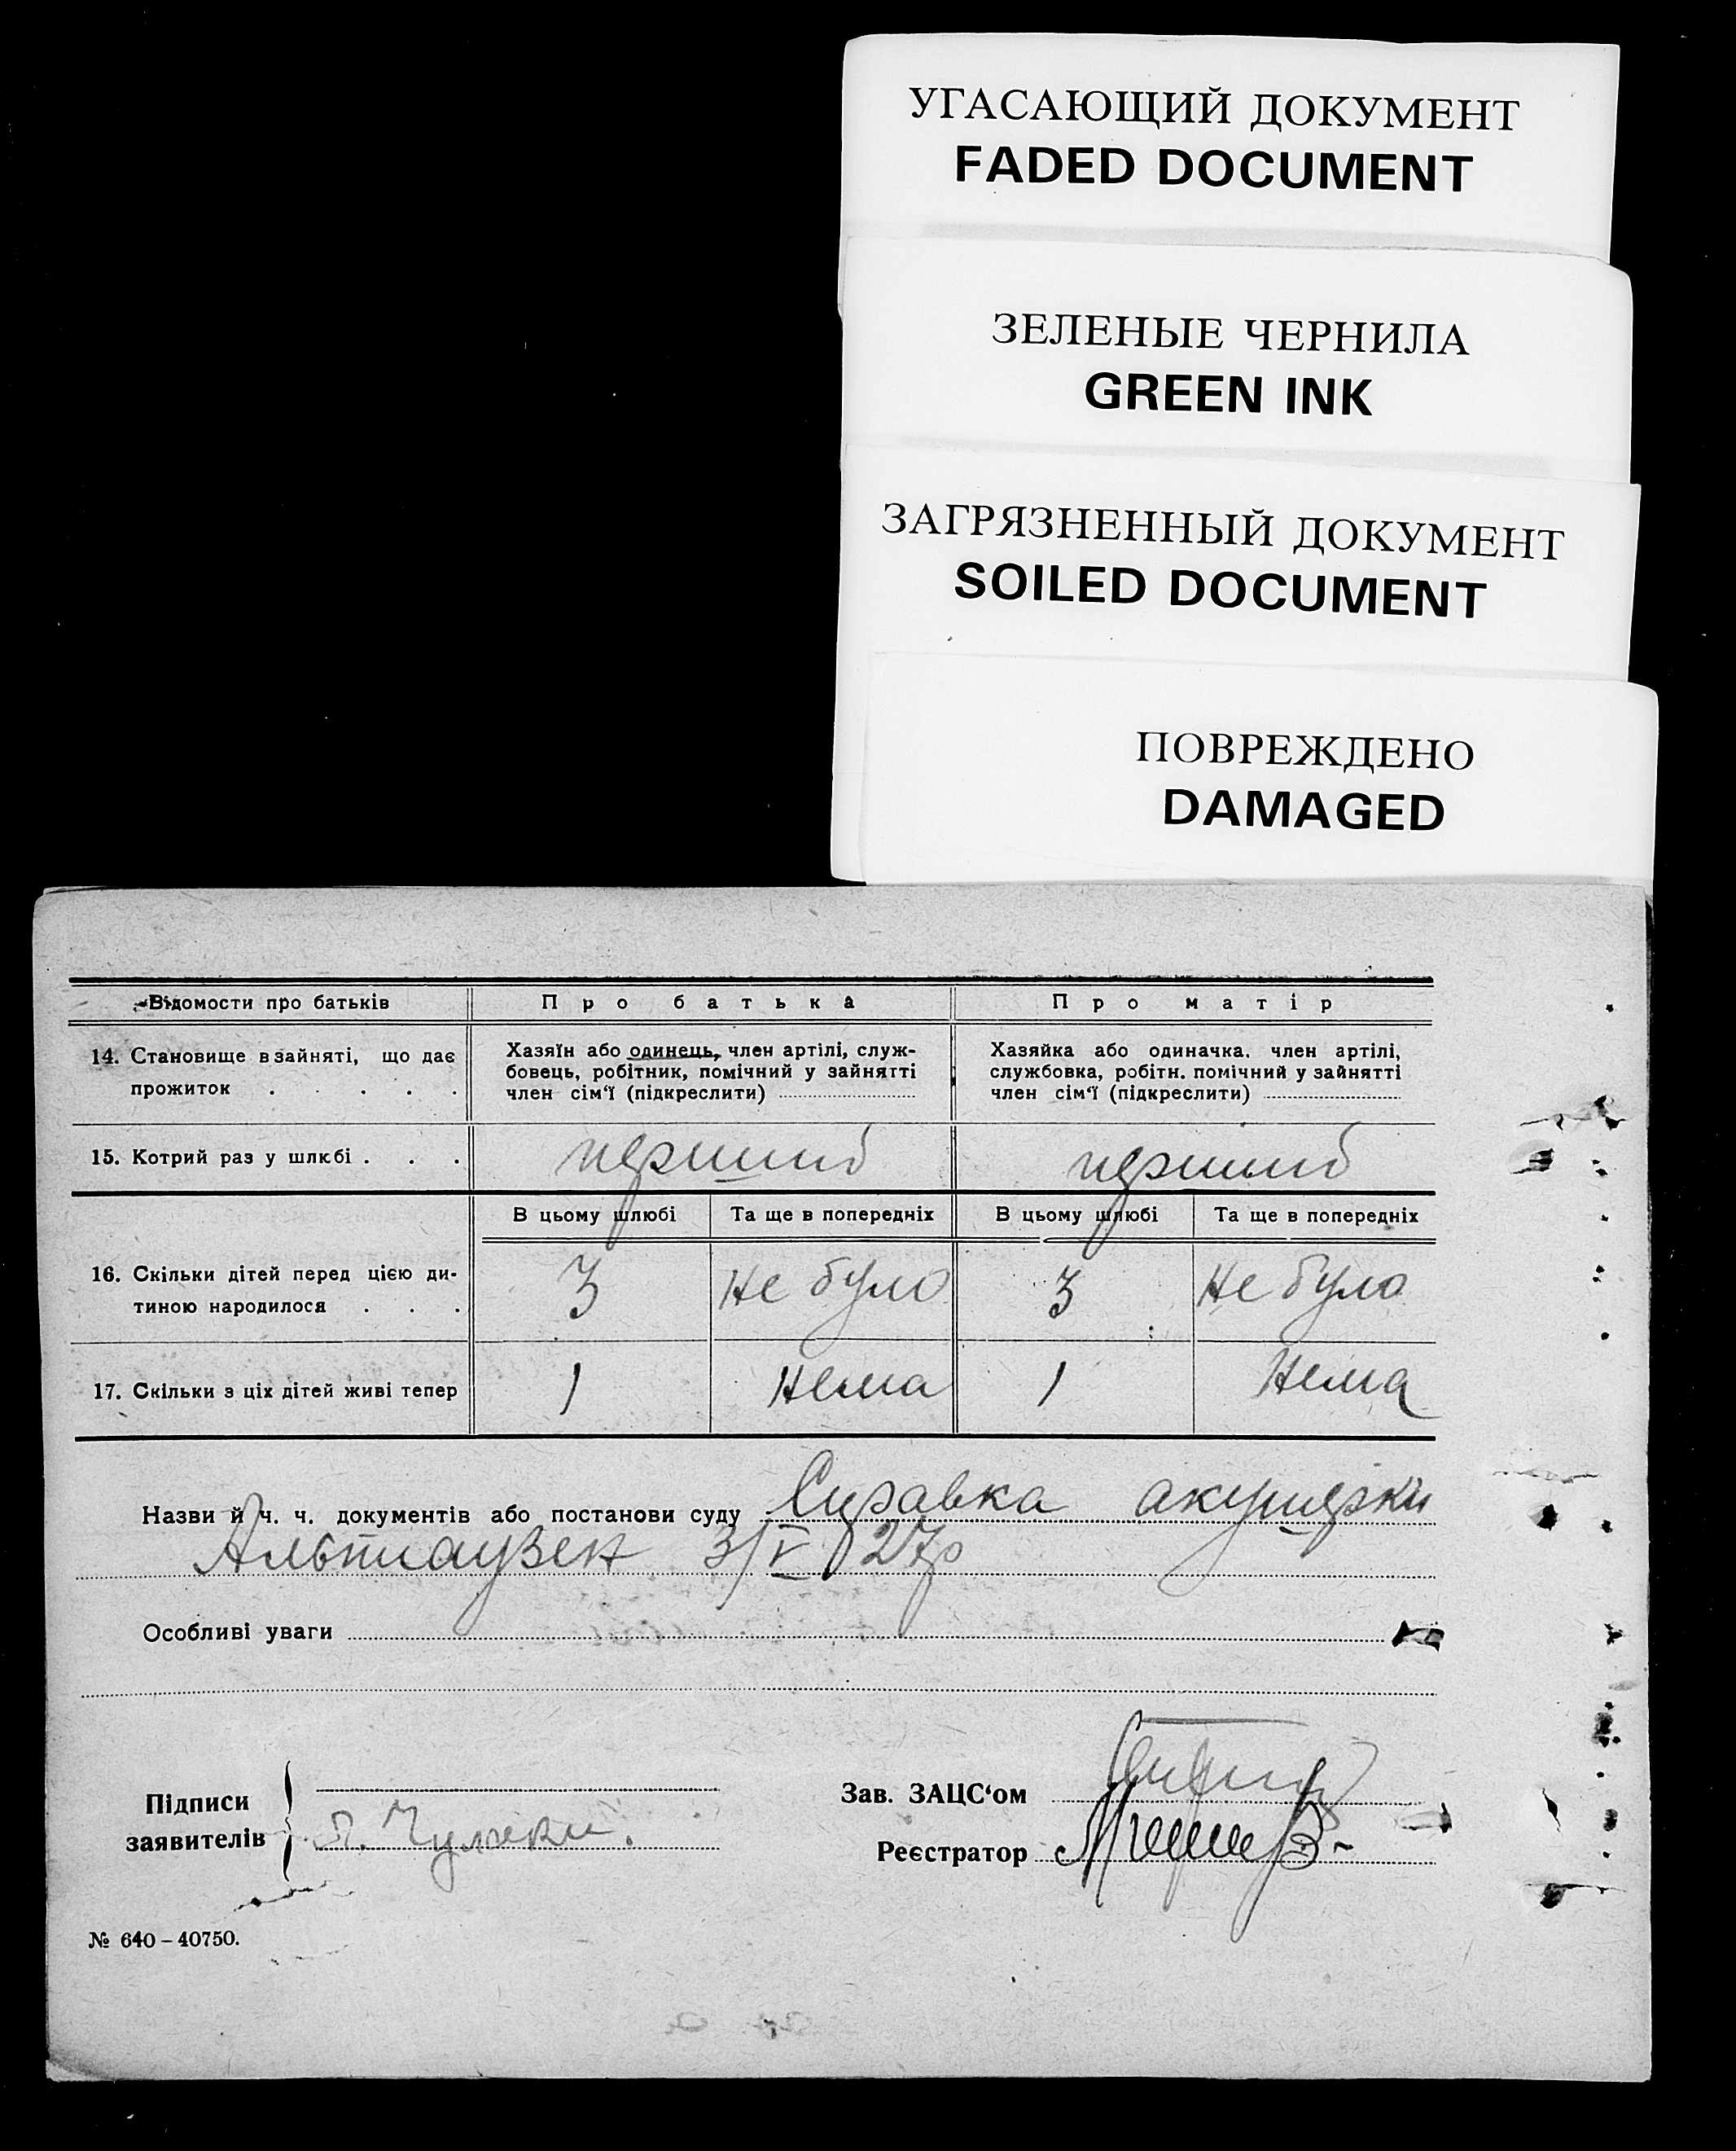 УГАСАЮЩИЙ ДОКУМЕНТ
FADED DOCUMENT
ЗЕЛЕНЫЕ ЧЕРНИЛА
GREEN INK
ЗАГРЯЗНЕННЫЙ ДОКУМЕНТ
SOILED DOCUMENT
ПОВРЕЖДЕНО
DAMAGED
Відомости про батьків Про батька Про матір
14. Становище в зайняті, що дає прожиток . . . .
Хазяїн або одинець, член артілі, служ-
бовець, робітник, помічний у зайнятті
член сім'ї (підкреслити)
Хазяйка або одиначка, член артілі,
службовка, робітн. помічний у зайнятті
член сім'ї (підкреслити)
15. Котрий раз у шлюбі . . . перший перший
В цьому шлюбі Та ще в попередніх В цьому шлюбі Та ще в попередніх
16. Скільки дітей перед цією ди-
тиною народилося . . . 3 не було 3 не було
17. Скільки з ціх дітей живі тепер 1 нема 1 нема
Назви й ч. ч. документів або постанови суду Справка акушерки
Альтгаузен 3/V 27р
Особливі уваги
Підписи
заявителів
Зав. ЗАЦС'ом
Реєстратор
№ 640-40750.